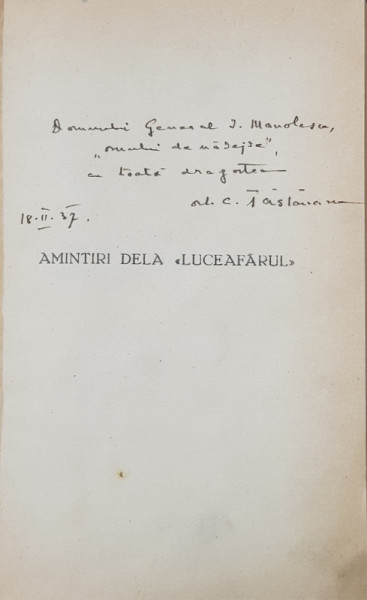 Domnului General I. Manolescu,
"omului de nădejde",
cu toată dragostea
oct. C. Tăslăuanu
18.II.37.
AMINTIRI DELA «LUCEAFĂRUL»